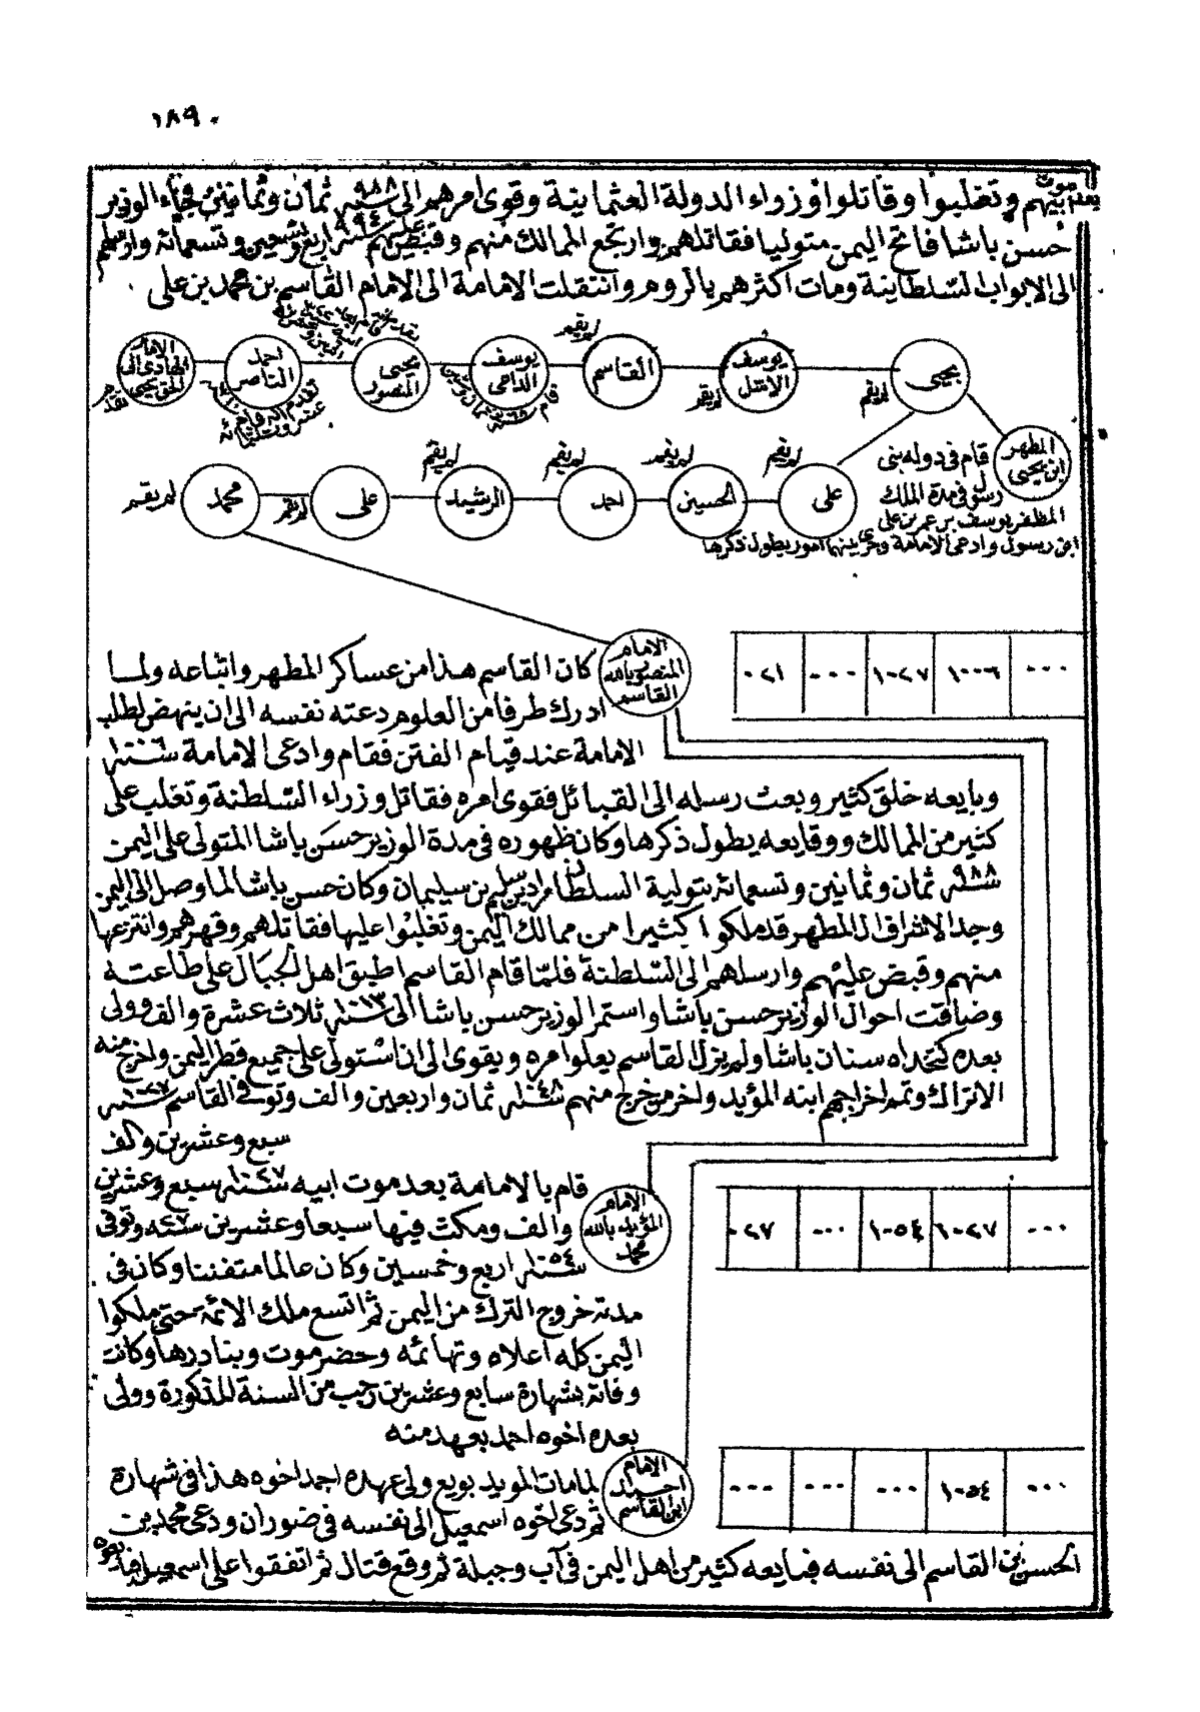 ١٨٩٠
بعد موت ابيهم وتغلبوا وقاتلوا وزراء الدولة العثمانية وقوى امرهم الى سنة ٩٨٨ ثمان وثمانين فجاء الوزير
حسن باشا فاتح اليمن متوليا فقاتلهم وارتجع الممالك منهم وقبض عليهم سنة ٩٩٤ اربع وتسعين وتسعمائة وارسلهم
الى الابواب السلطانية ومات اكثرهم بالروم وانتقلت الامامة الى الامام القاسم بن محمد بن على
يحيى
لم يقم
يوسف الاشل
لم يقم
القاسم
لم يقم
يوسف الداعى
قام سنة
يحيى المنصور
احمد الناصر
الامام الهادى الى الحق يحيى
تقدم
المطهر ابن يحيى
قام فى دوله بنى
رسول فى مدة الملك
المظفر يوسف بن عمر بن على
ابن رسول وادعى الامامة وجرى بينهما امور يطول ذكرها
على
لم يقم
الحسين
لم يقم
احمد
لم يقم
الرشيد
لم يقم
على
لم يقم
محمد
لم يقم
٠٠٠ ١٠٠٦ ١٠٢٧ ٠٠٠ ٠٢١
الامام المنصور بالله القاسم
كان القاسم هذا من عساكر المطهر واتباعه ولما
ادرك طرفا من العلوم دعته نفسه الى ان ينهض لطلب
الامامة عند قيام الفتن فقام وادعى الامامة سنة ١٠٠٦
وبايعه خلق كثير وبعث رسله الى القبائل فقوى امره فقاتل وزراء السلطنة وتغلب على
كثير من الممالك ووقايعه يطول ذكرها وكان ظهوره فى مدة الوزير حسن باشا المتولى على اليمن
سنة ٩٨٨ ثمان وثمانين وتسعمائة بتولية السلطان مراد بن سليم بن سليمان وكان حسن باشا لما وصل الى اليمن
وجد الاشراف ال المطهر قد ملكوا كثيرا من ممالك اليمن وتغلبوا عليها فقاتلهم وقهرهم وانتزعها
منهم وقبض عليهم وارسلهم الى السلطنة فلما قام القاسم اطبق اهل الجبال على طاعته
وضاقت احوال الوزير حسن باشا واستمر الوزير حسن باشا الى سنة ١٠١٣ ثلاث عشرة والف وولى
بعده كتخداه سنان باشا ولم يزل القاسم يعلوا امره ويقوى الى ان استولى على جميع قطر اليمن واخرج منه
الاتراك وتم اخراجهم ابنه المؤيد واخر من خرج منهم سنة ١٠٤٨ ثمان واربعين والف وتوفى القاسم سنة ١٠٢٧
سبع وعشرين والف
٠٠٠ ١٠٢٧ ١٠٥٤ ٠٠٠ ٠٢٧
الامام المؤيد بالله محمد
قام بالامامة بعد موت ابيه سنة ١٠٢٧ سبع وعشرين
والف ومكث فيها سبعا وعشرين سنة ٢٧ وتوفى
سنة ١٠٥٤ اربع وخمسين وكان عالما متفننا وكان فى
مدته خروج الترك من اليمن ثم اتسع ملك الائمة حتى ملكوا
اليمن كله اعلاه وتهائمه وحضرموت وبنادرها وكانت
وفاته بشهارة سابع وعشرين رجب من السنة المذكورة وولى
بعده اخوه احمد بعهد منه
٠٠٠ ١٠٥٤ ٠٠٠ ٠٠٠ ٠٠٠
الامام احمد ابن القاسم
لما مات المويد بويع ولى عهده احمد اخوه هذا فى شهارة
ثم دعى اخوه اسمعيل الى نفسه فى ضوران ودعى محمد بن
الحسن بن القاسم الى نفسه فبايعه كثير من اهل اليمن فى آب وجبلة ثم وقع قتال ثم اتفقوا على اسمعيل فبايعوه